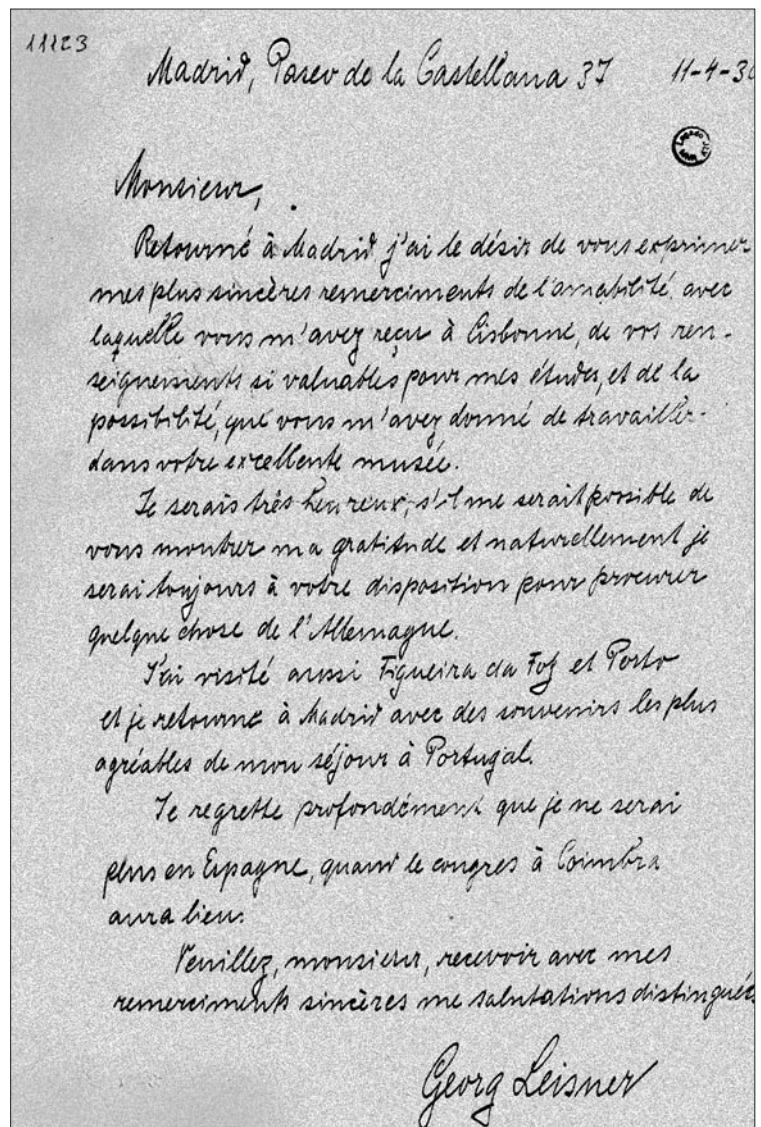 11123
Madrid, Paseo de la Castellana 37 11-4-30
Monsieur,
Retourné à Madrid, j'ai le désir de vous exprimer
mes plus sincères remerciments de l'amabilité avec
laquelle vous m'avez reçu à Lisbonne, de vos ren-
seignements si valuables pour mes études, et de la
possibilité, que vous m'avez donné de travailler
dans votre excellente musée.
Je serais très heureux, s'il me serait possible de
vous montrer ma gratitude et naturellement je
serai toujours à votre disposition pour procurer
quelque chose de l'Allemagne.
J'ai visité aussi Figueira da Foz et Porto
et je retourne à Madrid avec des souvenirs les plus
agréables de mon séjour à Portugal.
Je regrette profondément que je ne serai
plus en Espagne, quand le congres à Coimbra
aura lieu.
Veuillez, monsieur, recevoir avec mes
remerciments sincères me salutations distinguées
Georg Leisner